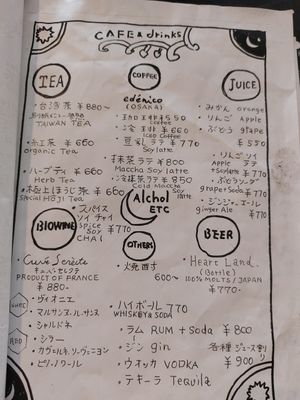 CAFE & drinks
TEA
・台湾茶 ¥880〜
TAIWAN TEA
・紅茶 ¥660
Organic Tea
・ハーブティ ¥660
Herb Tea
・極上ほうじ茶 ¥660
Special HOJI Tea
COFFEE
edénico
(OSAKA)
・珈琲 ¥550
Coffee
・冷珈琲 ¥660
Iced Coffee
・豆乳ラテ ¥770
Soy latte
・抹茶ラテ ¥800
Maccha Soy latte
・冷抹茶ラテ ¥850
Cold Maccha Soy latte
JUICE
・みかん orange
・りんご Apple
・ぶどう grape
¥550
・りんごソイラテ
Apple
+Soylatte ¥770
・ぶどうソーダ
grape+Soda ¥770
・ジンジャーエール
ginger Ale
¥770
・スパイスソイチャイ
Spice Soy CHAI
¥770
Alchol ETC
BIOWINE
Cuvée Sélecte
キュベ・セレクテ
PRODUCT OF FRANCE
¥880-
・ヴィオニエ
・マルサンヌ・ルーサンヌ
・シャルドネ
RED
・シラー
・カヴェルネ・ソーヴィニヨン
・ピノ・ノワール
OTHERS
・焼酎
600〜
・ハイボール 770
WHISKEY & SODA
・ラム RUM + Soda ¥800
・ジン gin
・ウォッカ VODKA
・テキーラ Tequila
各種ジュース割り
¥900
BEER
・Heart Land.
(Bottle)
100% MOLTS/JAPAN
¥770-